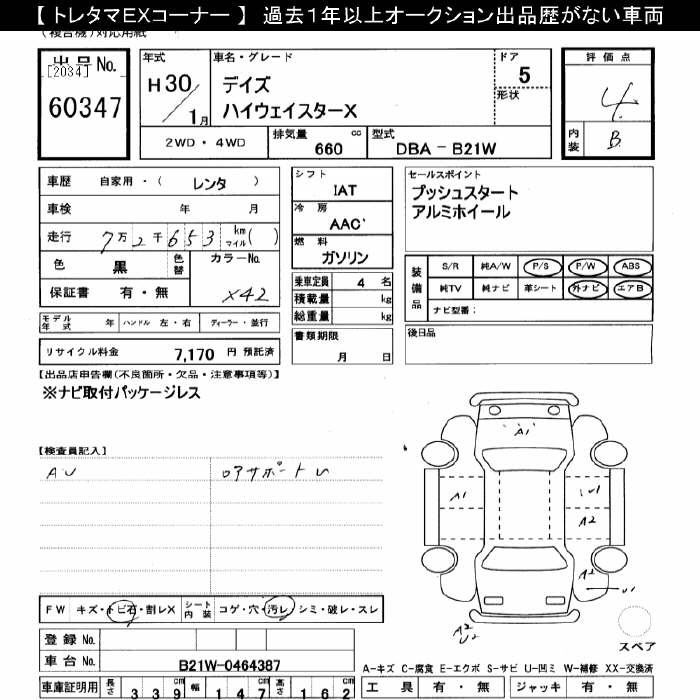 【 トレタマEXコーナー 】 過去1年以上オークション出品歴がない車両
(複合機)対応用紙
出品No.
[2034]
60347
年式
H30/1月
車名・グレード
デイズ
ハイウェイスターX
ドア
5
形状
2WD・4WD
排気量
660
cc
型式
DBA－B21W
評価点
4.
内装
B
車歴 自家用・( レンタ )
車検 年 月
走行 7万2千653 km マイル( )
色 黒 色替 カラーNo.
保証書 有・無 X42
シフト
IAT
冷房
AAC
燃料
ガソリン
乗車定員 4 名
積載量 kg
総重量 kg
書類期限
月 日
セールスポイント
プッシュスタート
アルミホイール
装備品
S/R 純A/W P/S P/W ABS
純TV 純ナビ 革シート 外ナビ エアB
ナビ型番：
後日品
モデル年式 年 ハンドル 左・右 ディーラー・並行
リサイクル料金 7,170 円 預託済
【出品店申告欄(不良箇所・欠品・注意事項等)】
※ナビ取付パッケージレス
【検査員記入】
AU
A1
A1
U1
A2
A2
U1
A2
U2
スペア
FW キズ・トビ石・割レX シート内装 コゲ・穴・汚レ・シミ・破レ・スレ
登録No.
車台No. B21W-0464387
車庫証明用 長さ 339cm 幅 147cm 高さ 162cm
A－キズ C－腐食 E－エクボ S－サビ U－凹ミ W－補修 XX－交換済
工具 有・無 ジャッキ 有・無